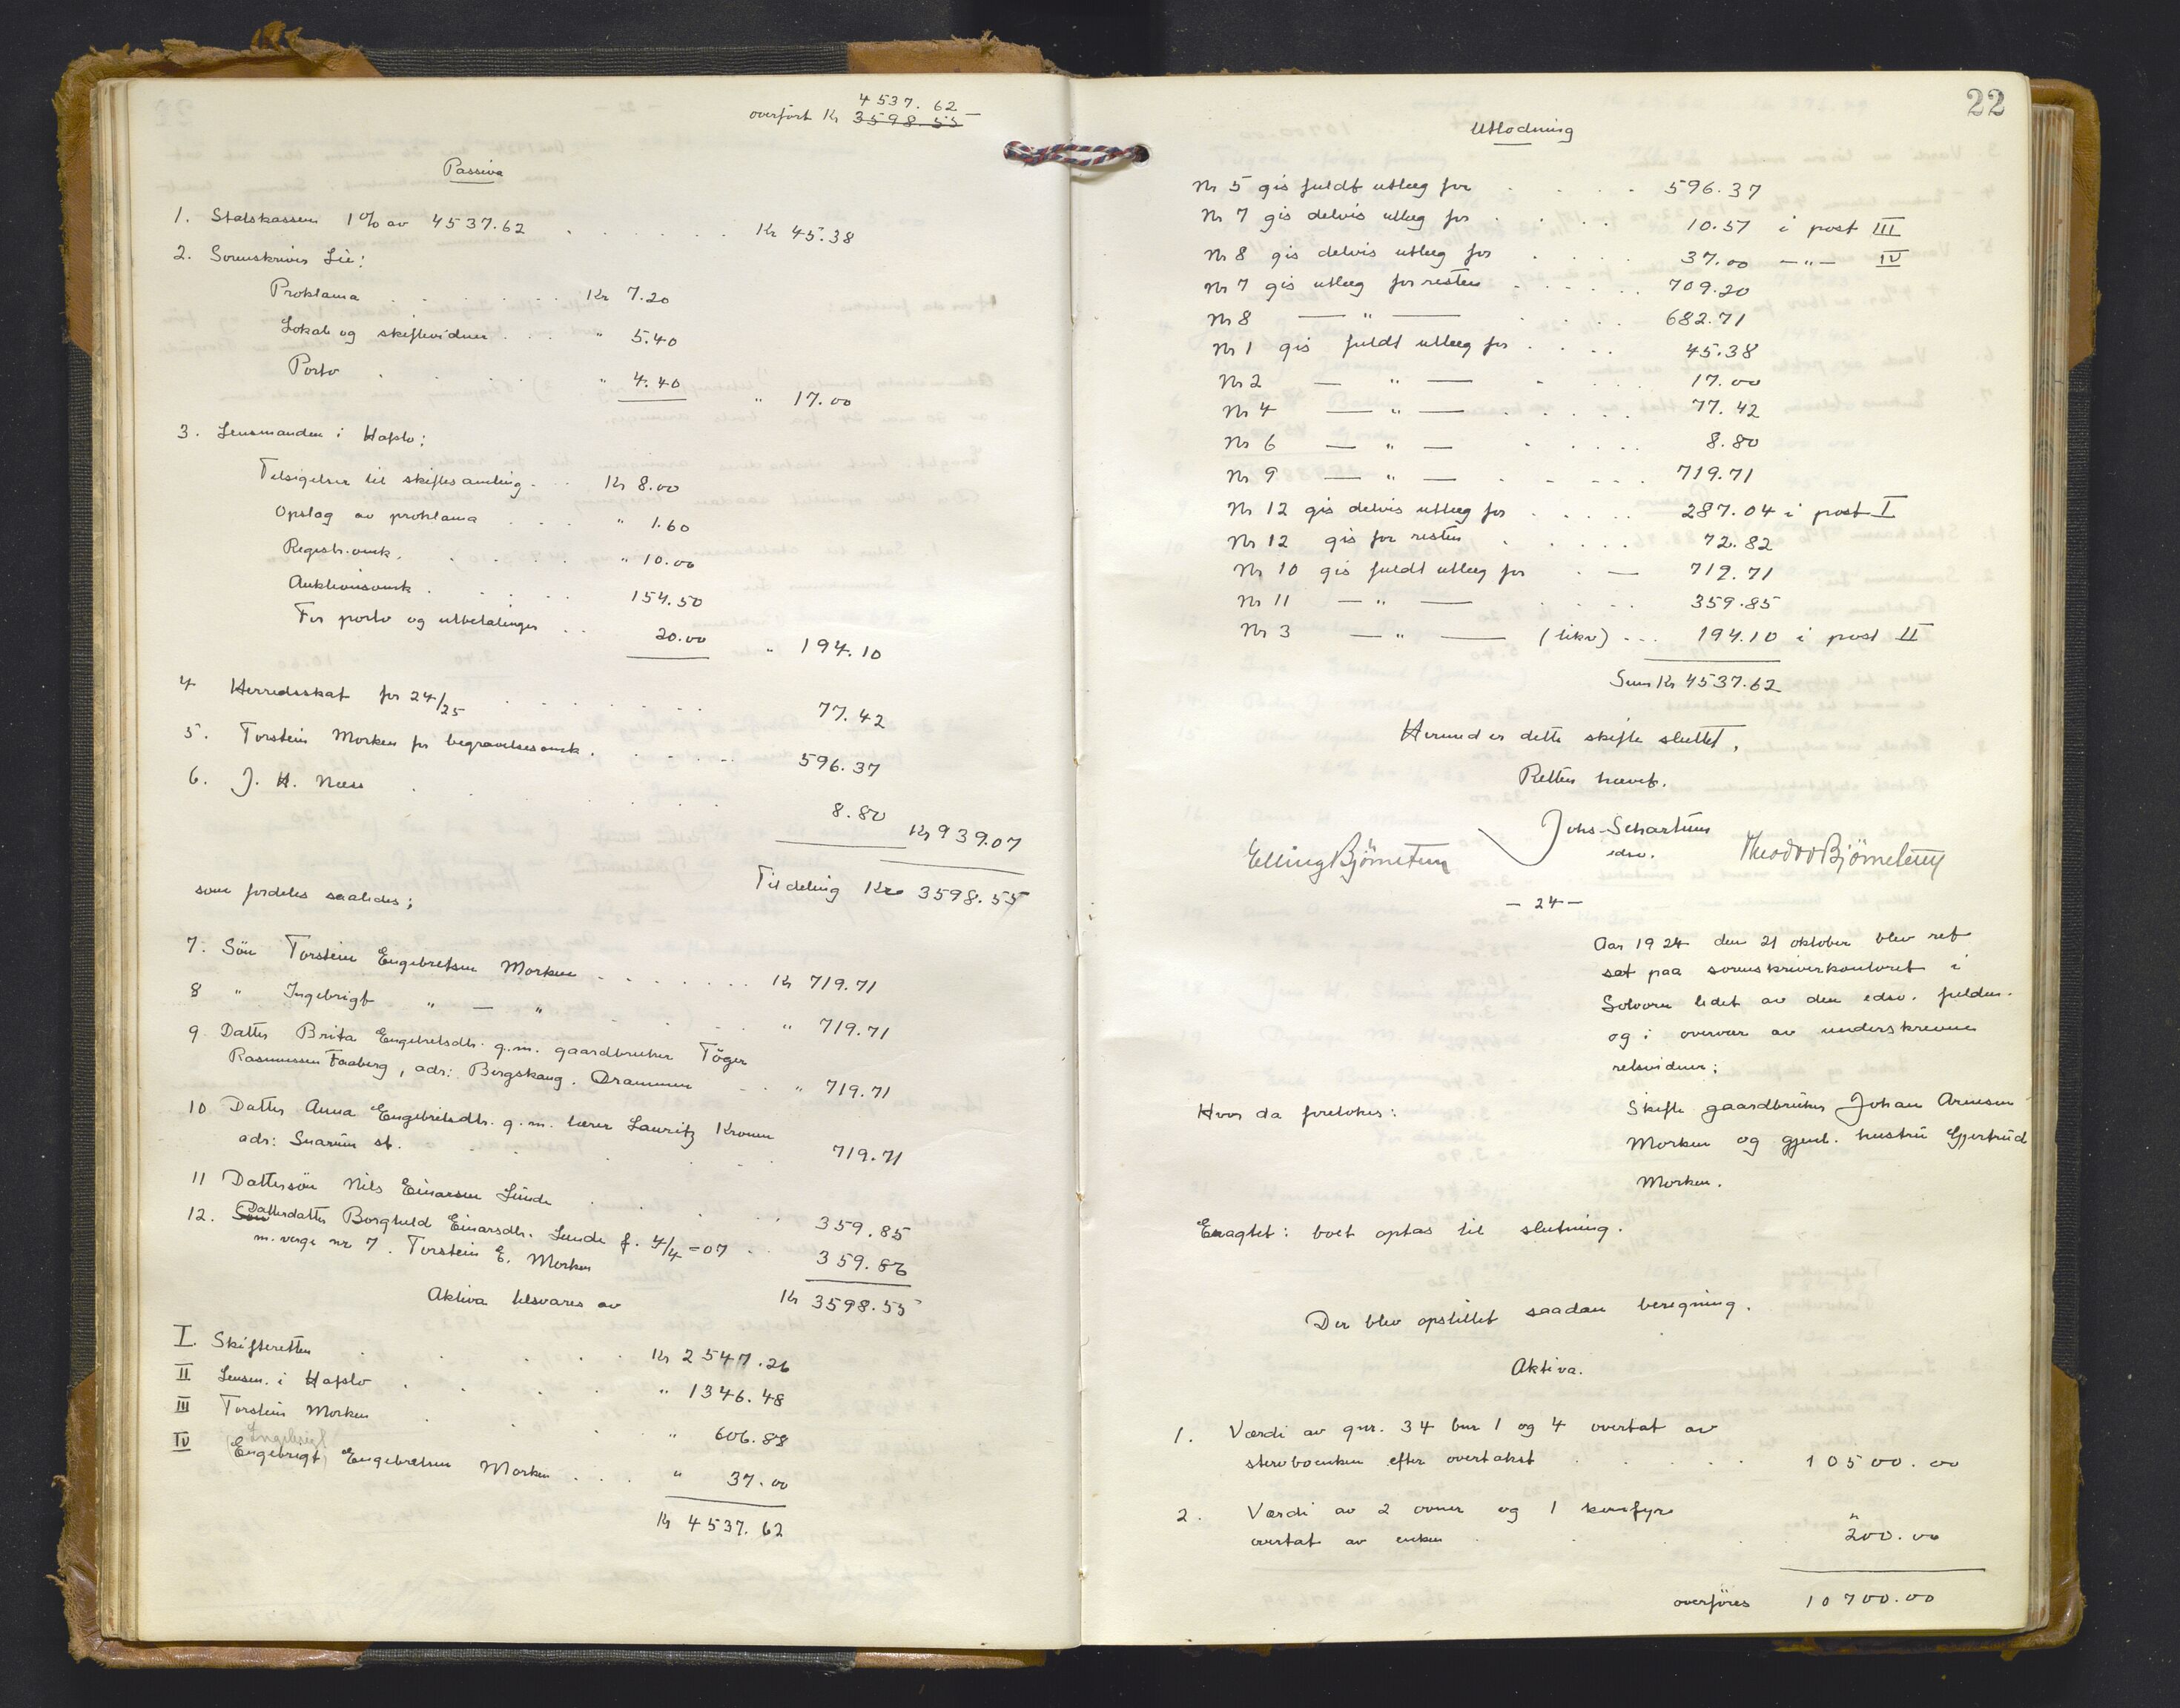 4537.62
overført Kr 3598.55
Passiva
1. Statskassen 1% av 4537.62 . . . . . . Kr 45.38
2. Sorenskriver Lie:
Proklama . . . . . . Kr 7.20
Lokale og skiftevidner . . . " 5.40
Porto . . . . " 4.40
" 17.00
3. Lensmanden i Hafslo:
Tilsigelser til skiftesamling . . Kr 8.00
Opslag av proklama . . . " 1.60
Registr.omk. . . . . " 10.00
Auktionsomk . . . . . 154.50
For porto og utbetalinger . . 20.00 " 194.10
4 Herredsskat for 24/25 . . . . . . . 77.42
5. Torstein Morken for begravelsesomk. . . . . . 596.37
6. J. H. Næss . . . . . . . 8.80
Kr 939.07
Til deling Kr 3598.55
som fordeles saaledes;
7. Sön Torstein Engebretsen Morken - . . . . . . Kr 719.71
8 " Ingebrigt " — " . . . . " 719.71
9 Datter Brita Engebretsdtr. g.m. gaardbruker Töger
Rasmussen Faaberg, adr: Bergskaug. Drammen . . " 719.71
10 Datter Anna Engebretsdtr. g.m. lærer Lauritz Kronen
adr: Snarum st. . . . . . . 719.71
11 Dattersön Nils Einarsen Lunde . . . . . 359.85
12. Sön Datterdatter Borghild Einarsdtr. Lunde f. 4/4 - 07 . . 359.86
m. verge nr 7. Torstein E. Morken
Aktiva tilsvares av Kr 3598.55
I. Skifteretten . . . . . Kr 2547.26
II Lensm. i Hafslo . . . . " 1346.48
III Torstein Morken . . . " 606.88
Ingebrigt
IV (Engebrigt) Engebretsen Morken . . . " 37.00
Kr 4537.62
22
Utlodning
Nr 5 gis fuldt utlæg for . . . . 596.37
Nr 7 gis delvis utlæg for . . . . 10.57 i post III
Nr 8 gis delvis utlæg for . . . . 37.00 —"— IV
Nr 7 gis utlæg for resten . . . . . 709.20
Nr 8 — " — . . . . 682.71
Nr 1 gis fuldt utlæg for . . . . 45.38
Nr 2 — " — . . . . 17.00
Nr 4 — " — . . . . . 77.42
Nr 6 — " — . . . . 8.80
Nr 9 — " — . . . . . 719.71
Nr 12 gis delvis utlæg for . . . . . 287.04 i post I
Nr 12 gis for resten . . . . . 72.82
Nr 10 gis fuldt utlæg for . — 719.71
Nr 11 — " — . . . . 359.85
Nr 3 — " — (likv) . . . 194.10 i post II
Sum Kr 4537.62
Hermed er dette skifte sluttet.
Retten hævet.
Johs. Schartum
edsv.
Elling Bjørnetun
Theodor Bjørnetun
— 24 —
Aar 1924 den 21 oktober blev ret
sat paa sorenskriverkontoret i
Solvorn ledet av den edsv. fuldm.
og i overvær av underskrevne
retsvidner;
Hvor da foretokes:
Skifte gaardbruker Johan Arnesen
Morken og gjenl. hustru Gjertrud
Morken.
Eragtet: boet optas til slutning.
Der blev opstillet saadan beregning.
Aktiva.
1. Værdi av gnr. 34 bnr 1 og 4 overtat av
stervboenken efter overtakst . . . . . 10500.00
2. Værdi av 2 ovner og 1 komfyr
overtat av enken . . . " 200.00
overføres 10700.00